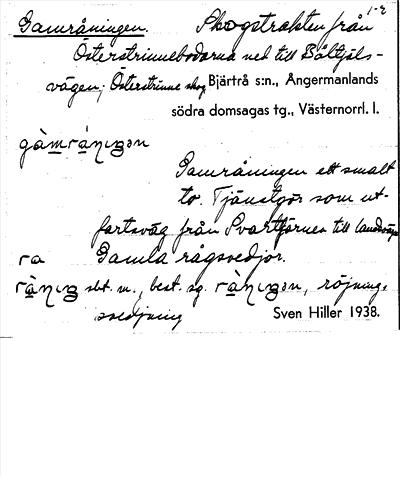 1-2
Gamråningen. Skogstrakten från
Österstrinnebodarna ned till Båltjäls-
vägen; Österstrinne skog Bjärtrå s:n., Ångermanlands
södra domsagas tg., Västernorrl. l.
gàmrånıŋən
Gamråningen ett smalt
to. Tjänstgör som ut-
fartsväg från Svarttjärnen till landsvägen
ra Gamla rågsvedjor.
rånıŋ sbt. m., best. sg. rånıŋən, röjning,
svedjning
Sven Hiller 1938.